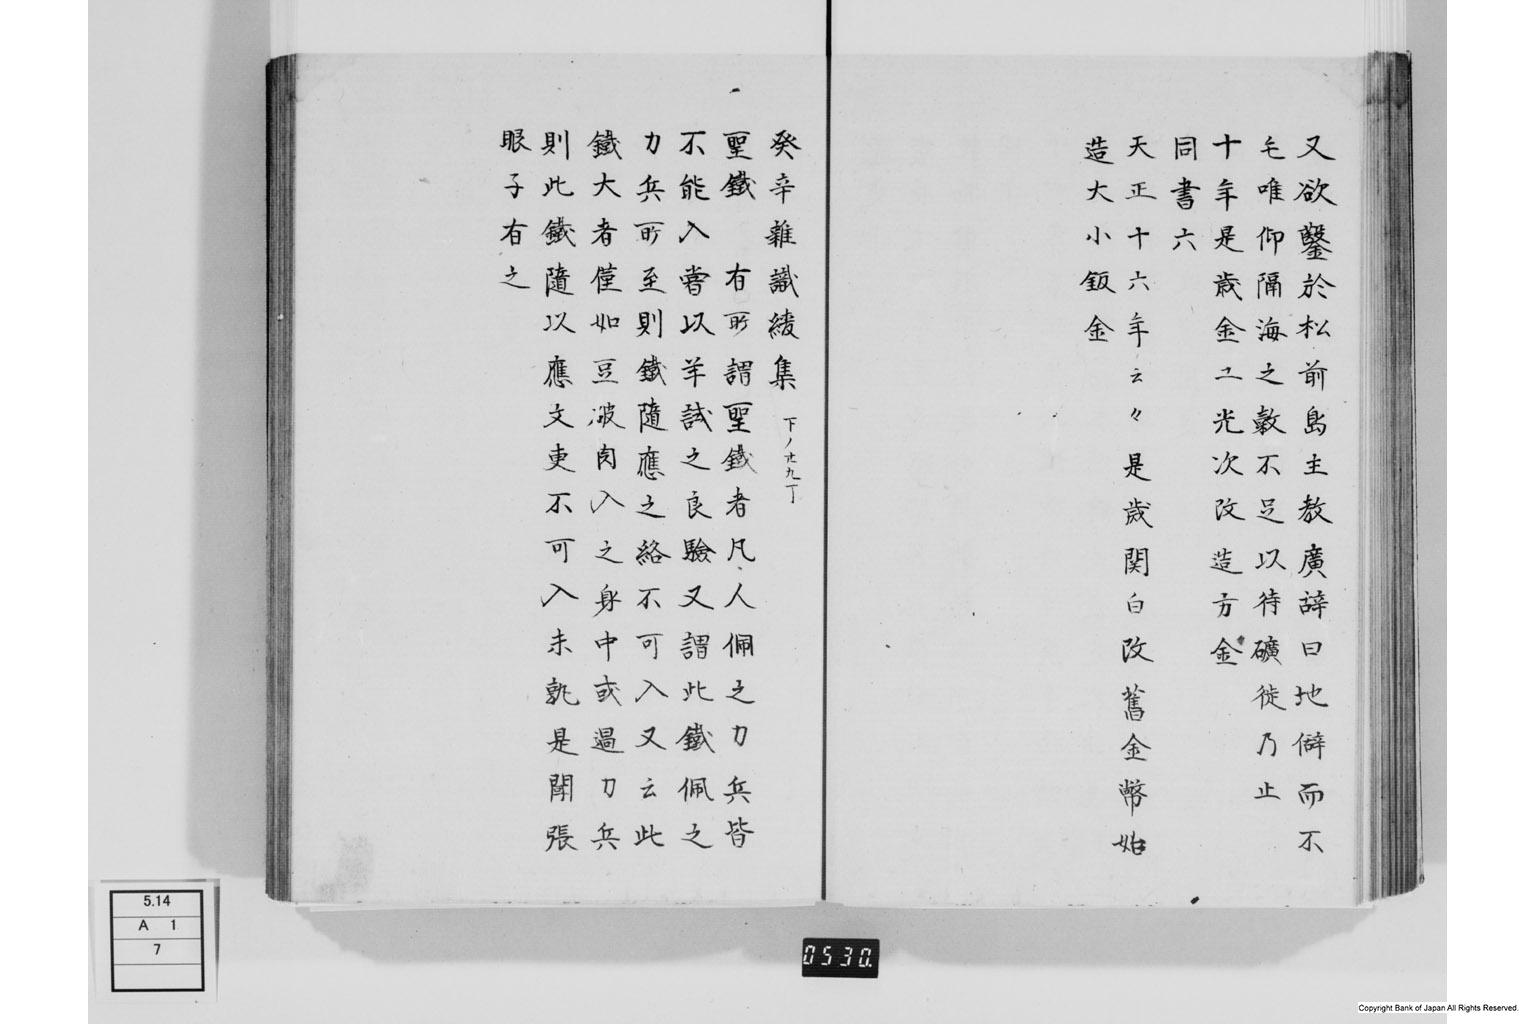 又欲鑿於松前島主教廣辞曰地僻而不
毛唯仰隔海之穀不足以待礦徒乃止
十年是歳金工光次改造方金
同書六
天正十六年云々是歳関白改舊金幣始
造大小鈑金
癸辛雜識続集 下ノ廿九丁
聖鐵 有所謂聖鐵者凡人佩之刀兵皆
不能入嘗以羊試之良驗又謂此鐵佩之
刀兵所至則鐵隨應之終不可入又云此
鐵大者僅如豆破肉入之身中或遇刀兵
則此鐵隨以應文吏不可入未孰是閑張
眼子有之
5.14
A 1
7
0530.
Copyright Bank of Japan All Rights Reserved.